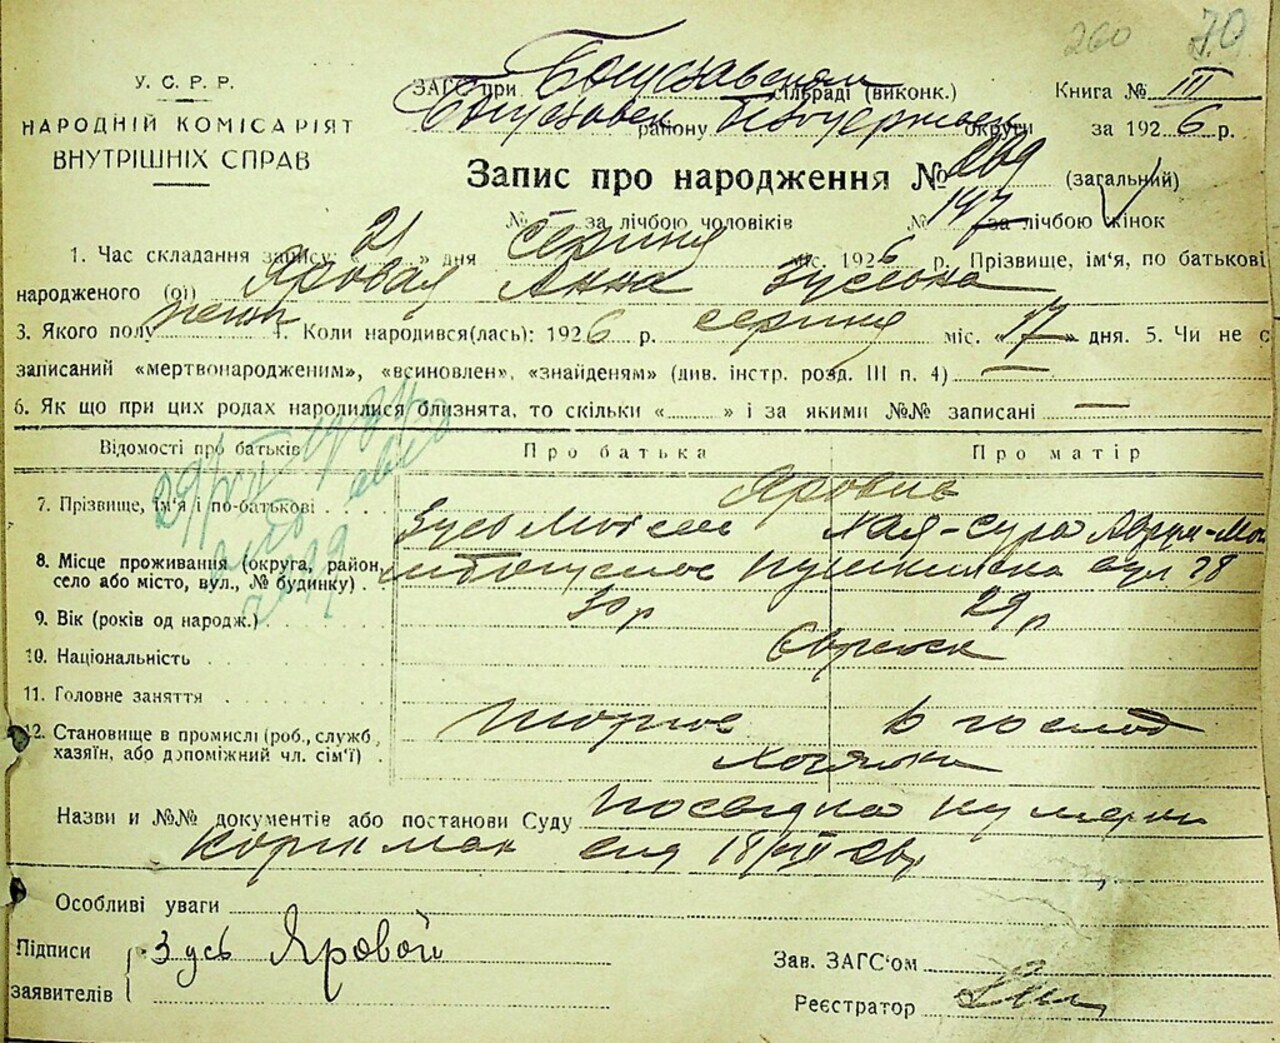 260 70
У. С. Р. Р.
НАРОДНІЙ КОМІСАРІЯТ
ВНУТРІШНІХ СПРАВ
ЗАГС при Богуславском сільраді (виконк.)
Богуславск району Білоцерківськ округи
Книга № III
за 1926 р.
Запис про народження № 269 (загальний)
№ за лічбою чоловіків № 147 за лічбою жінок
1. Час складання запису: « 21 » дня серпня міс. 1926 р. Прізвище, ім'я, по батькові
народженого (ої) Яровая Анна Зусевна
3. Якого полу жін 4. Коли народився(лась): 1926 р. серпня міс. « 17 » дня. 5. Чи не є
записаний «мертвонародженим», «всиновлен», «знайденям» (див. інстр. розд. III п. 4) —
6. Як що при цих родах народилися близнята, то скільки « » і за якими №№ записані —
Відомості про батьків Про батька Про матір
7. Прізвище, ім'я і по-батькові Яровие
Зусь Хая-Сура
8. Місце проживання (округа, район,
село або місто, вул., № будинку) вул 28
9. Вік (років од народж.) 30 р 29 р
10. Національність Євреюск
11. Головне заняття
12. Становище в промислі (роб., служб.,
хазяїн, або допоміжний чл. сім'ї) в господ
Назви и №№ документів або постанови Суду
18/VIII 26 р
Особливі уваги
Підписи
заявителів
Зусь Яровой
Зав. ЗАГС'ом
Реєстратор